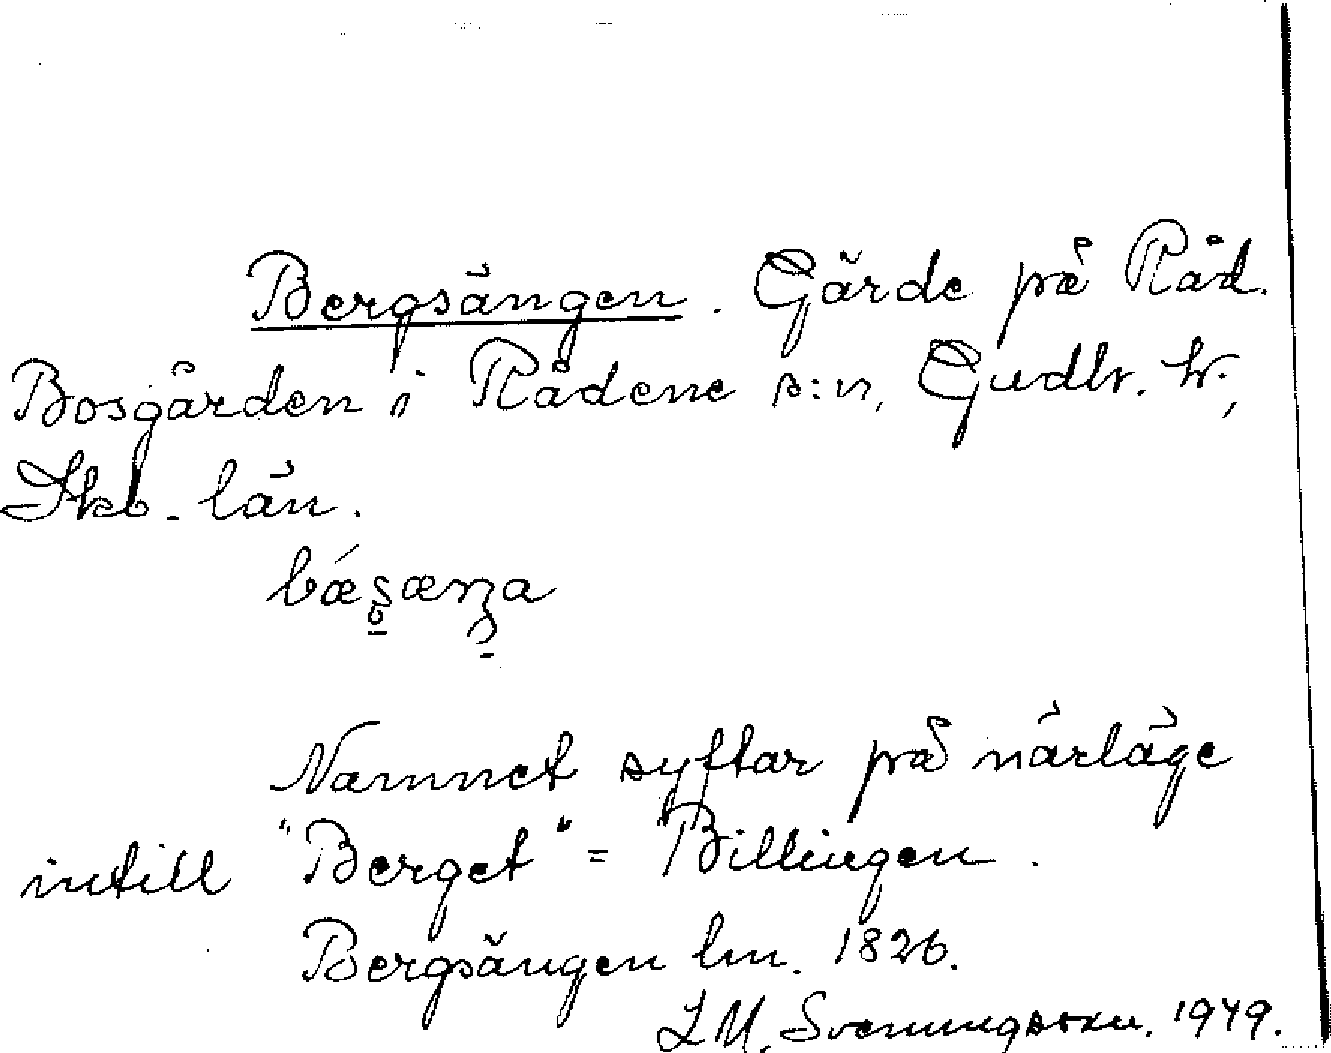 Bergsängen. Gärde på Råd.
Bosgården i Rådene s:n, Gudh. h.,
Skb. län.
Namnet syftar på närläge
intill "Berget" = Billingen.
Bergsängen lm. 1826.
L M. Svenungsson. 1949.